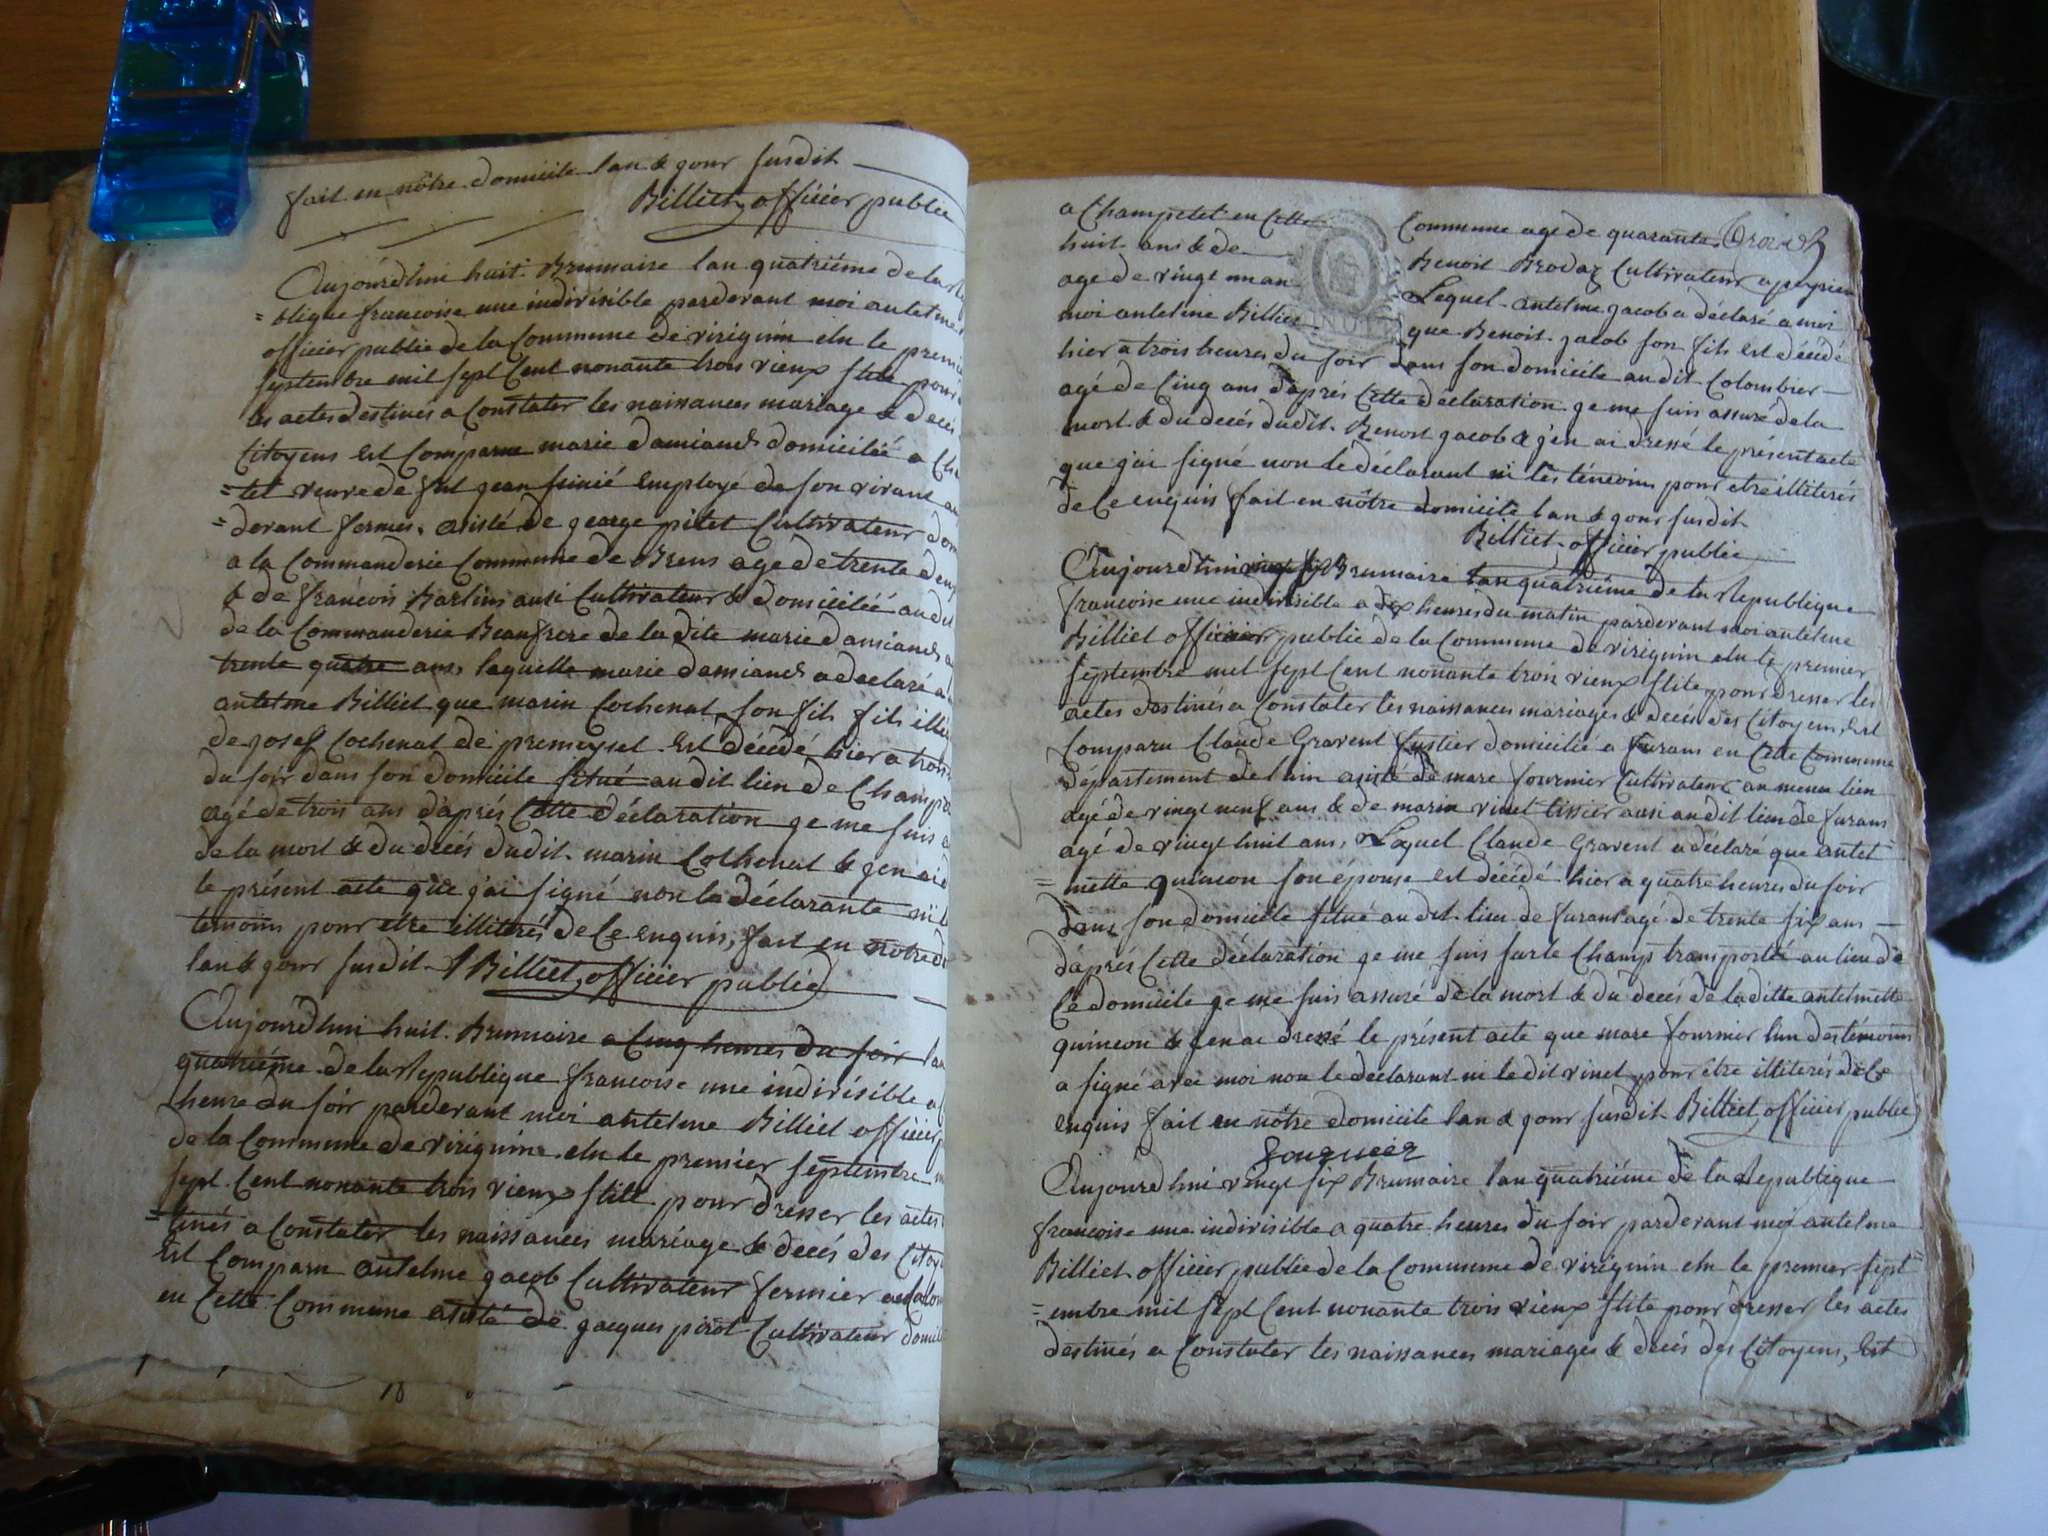 fait en nôtre domicile lan & jour susdit
Billiet officier public
Aujourdhui huit Brumaire lan quatriéme de la
= blique francoise une indivisible pardevant moi antelme
officier public de la Commune de virignin elu le premier
septembre mil sept Cent nonante trois vieux stile pour
les actes destinés a Constater les naissances mariage & decés
Citoyens est Comparue marie damiand domiciliée a Cha
= tel veuve de fut jean employé de son vivant au
= devant fermes. asisté de george pitet Cultivateur dom
a la Commanderie Commune de Brens age de trente deux
& de francois Barlin ausi Cultivateur & domiciliéé audit
de la Commanderie Beaufrere de la dite marie damiand a
trente quatre ans, laquelle marie damiand a declaré a
antelme Billiet que marin Cochenat son fils fils ille
de josef Cochenat de premeysel est décédé hier a trois
du soir dans son domicile situé audit lieu de Champ
agé de trois ans d'aprés Cette déclaration je me suis a
de la mort & du décés dudit marin Cochenat & jen ai d
le présent acte que j'ai signé non la déclarante ni l
temoins pour etre illiterés de Ce enquis, fait en notre d
lan & jour susdit Billiet officier public
Aujourdhui huit Brumaire a Cinq heures du soir lan
quatriéme de la Republique francoise une indivisible a
heure du soir pardevant moi antelme Billiet officier p
de la Commune de virignin elu le premier septembre m
sept Cent nonante trois vieux stile pour dresser les actes
= tinés a Constater les naissances mariage & decés des Citoy
Est Comparu antelme jacob Cultivateur fermier a Colom
en Cette Commune asisté de jacques pirot Cultivateur domil
a Champetel en Cette Commune agé de quarante
huit ans & de Benoit Brodaz Cultivateur a peyrieu
age de vingt un an Lequel antelme jacob a déclaré a moi
moi antelme Billiet que Benoit jacob son fils est décédé
hier a trois heures du soir dans son domicile audit Colombier
agé de Cinq ans d'aprés Cette déclaration je me suis assuré de la
mort & du decés dudit Benoit jacob & j'en ai dressé le présent acte
que j'ai signé non le déclarant ni les témoins pour etre illiterés
de Ce enquis fait en nôtre domicile lan & jour susdit
Billiet officier public
Aujourdhui vingt six Brumaire lan quatriéme de la Republique
francoise une indivisible a dix heures du matin pardevant moi antelme
Billiet officier public de la Commune de virignin elu le premier
septembre mil sept Cent nonante trois vieux stile pour dresser les
actes destinés a Constater les naissances mariages & decés des Citoyens, Est
Comparu Claude Gravent fustier domicilié a furans en Cette Commune
département de lain asisté de marc fournier Cultivateur au meme lieu
agé de vingt neuf ans & de marin vinet tissier ausi audit lieu de furans
agé de vingt huit ans, Lequel Claude Gravent a déclaré que antel
= mette quincon son épouse est décédé hier a quatre heures du soir
dans son domicile situé audit lieu de furans agé de trente six ans
d'aprés Cette declaration je me suis sur le Champs transporté au lieu de
Ce domicile je me suis assuré de la mort & du decés de la ditte antelmette
quincon & j'en ai dressé le présent acte que marc fournier lun des témoins
a signé avec moi non le declarant ni le dit vinet pour étre illiterés de Ce
enquis fait en nôtre domicile lan & jour susdit Billiet officier public
Aujourdhui vingt six Brumaire lan quatriéme de la Republique
francoise une indivisible a quatre heures du soir pardevant moi antelme
Billiet officier public de la Commune de virignin elu le premier sept
= embre mil sept Cent nonante trois vieux stile pour dresser les actes
destinés a Constater les naissances mariages & decés des Citoyens, Est